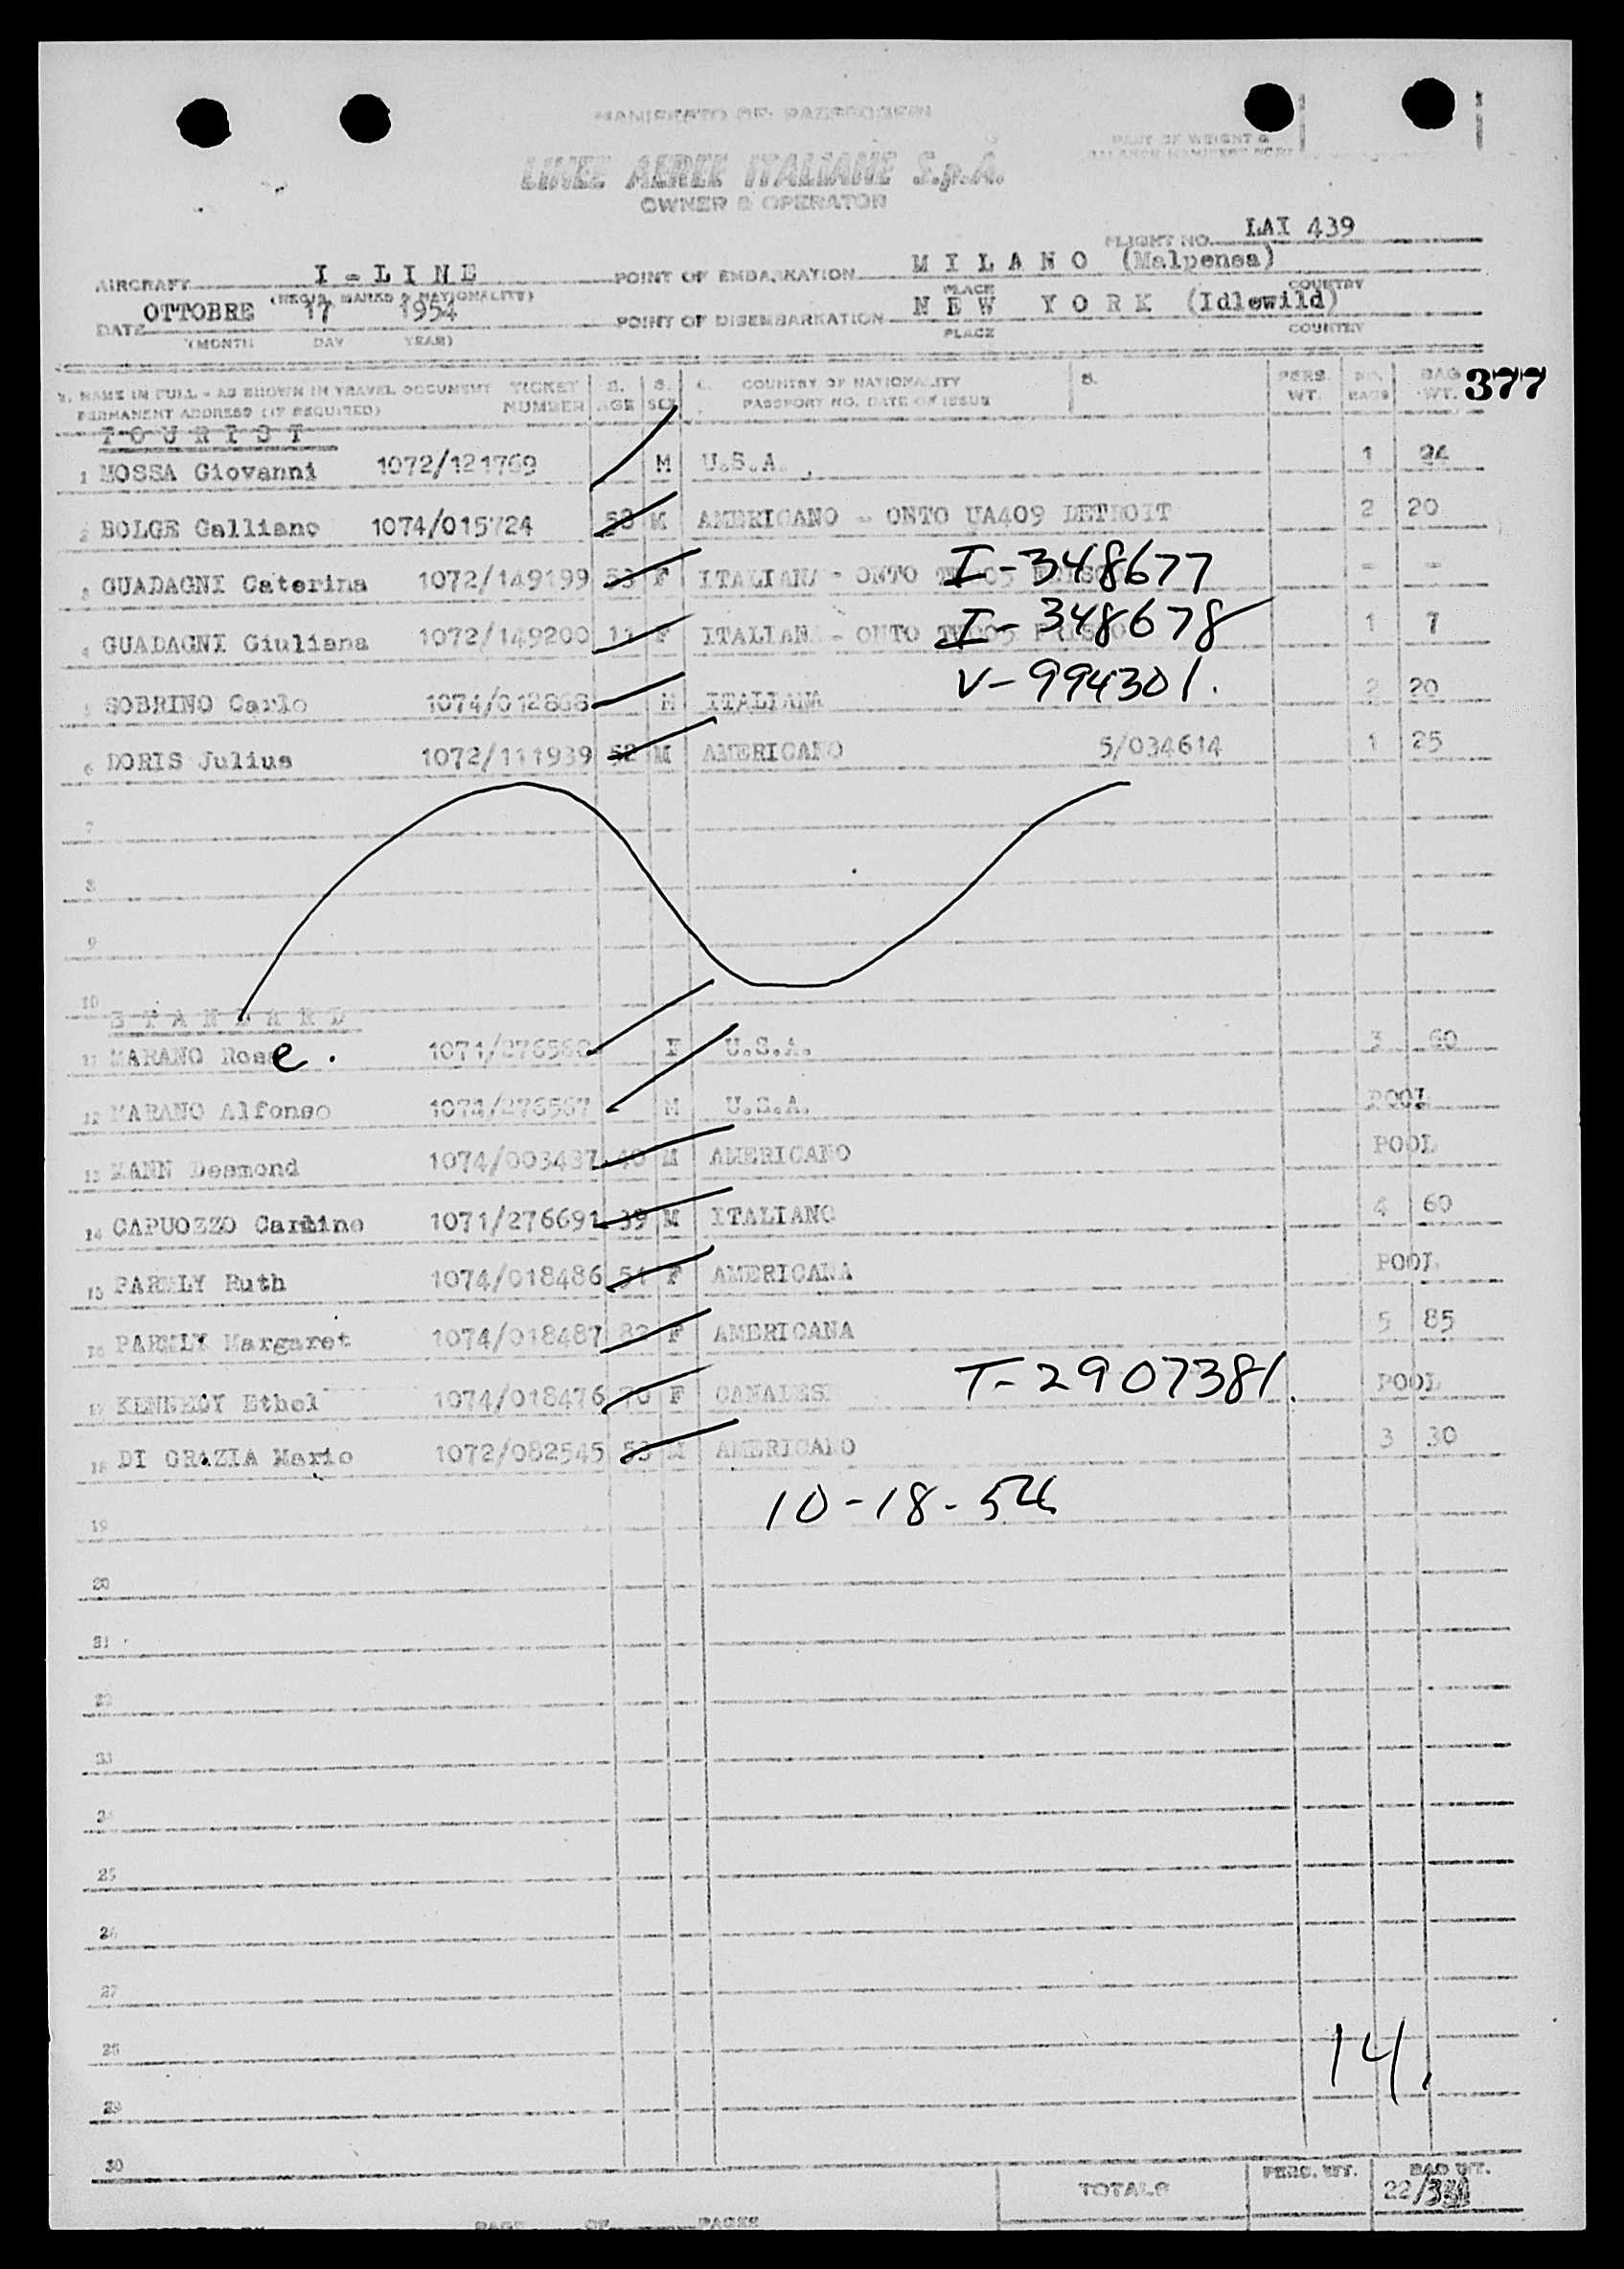 MANIFESTO OF PASSEGGERI
PART OF WEIGHT &
LINEE AEREE ITALIANE S.p.A.
OWNER & OPERATOR
FLIGHT NO. LAI 439
AIRCRAFT I - L I N E POINT OF EMBARKATION M I L A N O (Malpensa)
(REGIS. MARKS & NATIONALITY) PLACE COUNTRY
DATE OTTOBRE 17 1954 POINT OF DISEMBARKATION N E W Y O R K (Idlewild)
(MONTH DAY YEAR) PLACE COUNTRY
377
NAME IN FULL - AS SHOWN IN TRAVEL DOCUMENT TICKET AGE SEX COUNTRY OF NATIONALITY PERS. NO. BAG
PERMANENT ADDRESS (IF REQUIRED) NUMBER PASSPORT NO. DATE OF ISSUE WT. BAGS WT.
T O U R I S T
1 MOSSA Giovanni 1072/121769 M U.S.A. 1 24
2 BOLGE Galliano 1074/015724 58 M AMERICANO - ONTO UA409 DETROIT 2 20
3 GUADAGNI Caterina 1072/149199 53 F ITALIANA - ONTO I-348677 - -
4 GUADAGNI Giuliana 1072/149200 11 F ITALIANA - ONTO I-348678 1 7
5 SOBRINO Carlo 1074/012868 M ITALIANA V-994301. 2 20
6 DORIS Julius 1072/111939 52 M AMERICANO 5/034614 1 25
7
8
9
10
S T A N D A R D
11 MARANO Rose. 1071/276566 F U.S.A. 3 60
12 MARANO Alfonso 1071/276567 M U.S.A. POOL
13 MANN Desmond 1074/003437 40 M AMERICANO POOL
14 CAPUOZZO Carmine 1071/276691 39 M ITALIANO 4 60
15 PARMLY Ruth 1074/018486 51 F AMERICANA POOL
16 PARMLY Margaret 1074/018487 82 F AMERICANA 5 85
17 KENNEDY Ethel 1074/018476 70 F CANADESE T-2907381. POOL
18 DI GRAZIA Mario 1072/082545 53 M AMERICANO 3 30
10-18-54
19
20
21
22
23
24
25
26
27
28
14.
29
30
TOTALS PERS. WT. BAG WT.
22/331
PAGE OF PAGES